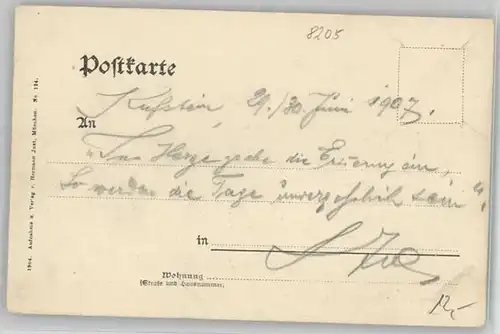 8205
Postkarte
Kufstein, 29./30. Juni 1907.
An
"Ins Herze grabe die Erinnerung ein,
So werden die Tage unvergesslich sein".
in
Wohnung
(Straße und Hausnummer)
12,-
1904. Aufnahme u. Verlag v. Hermann Jost, München. Nr. 124.